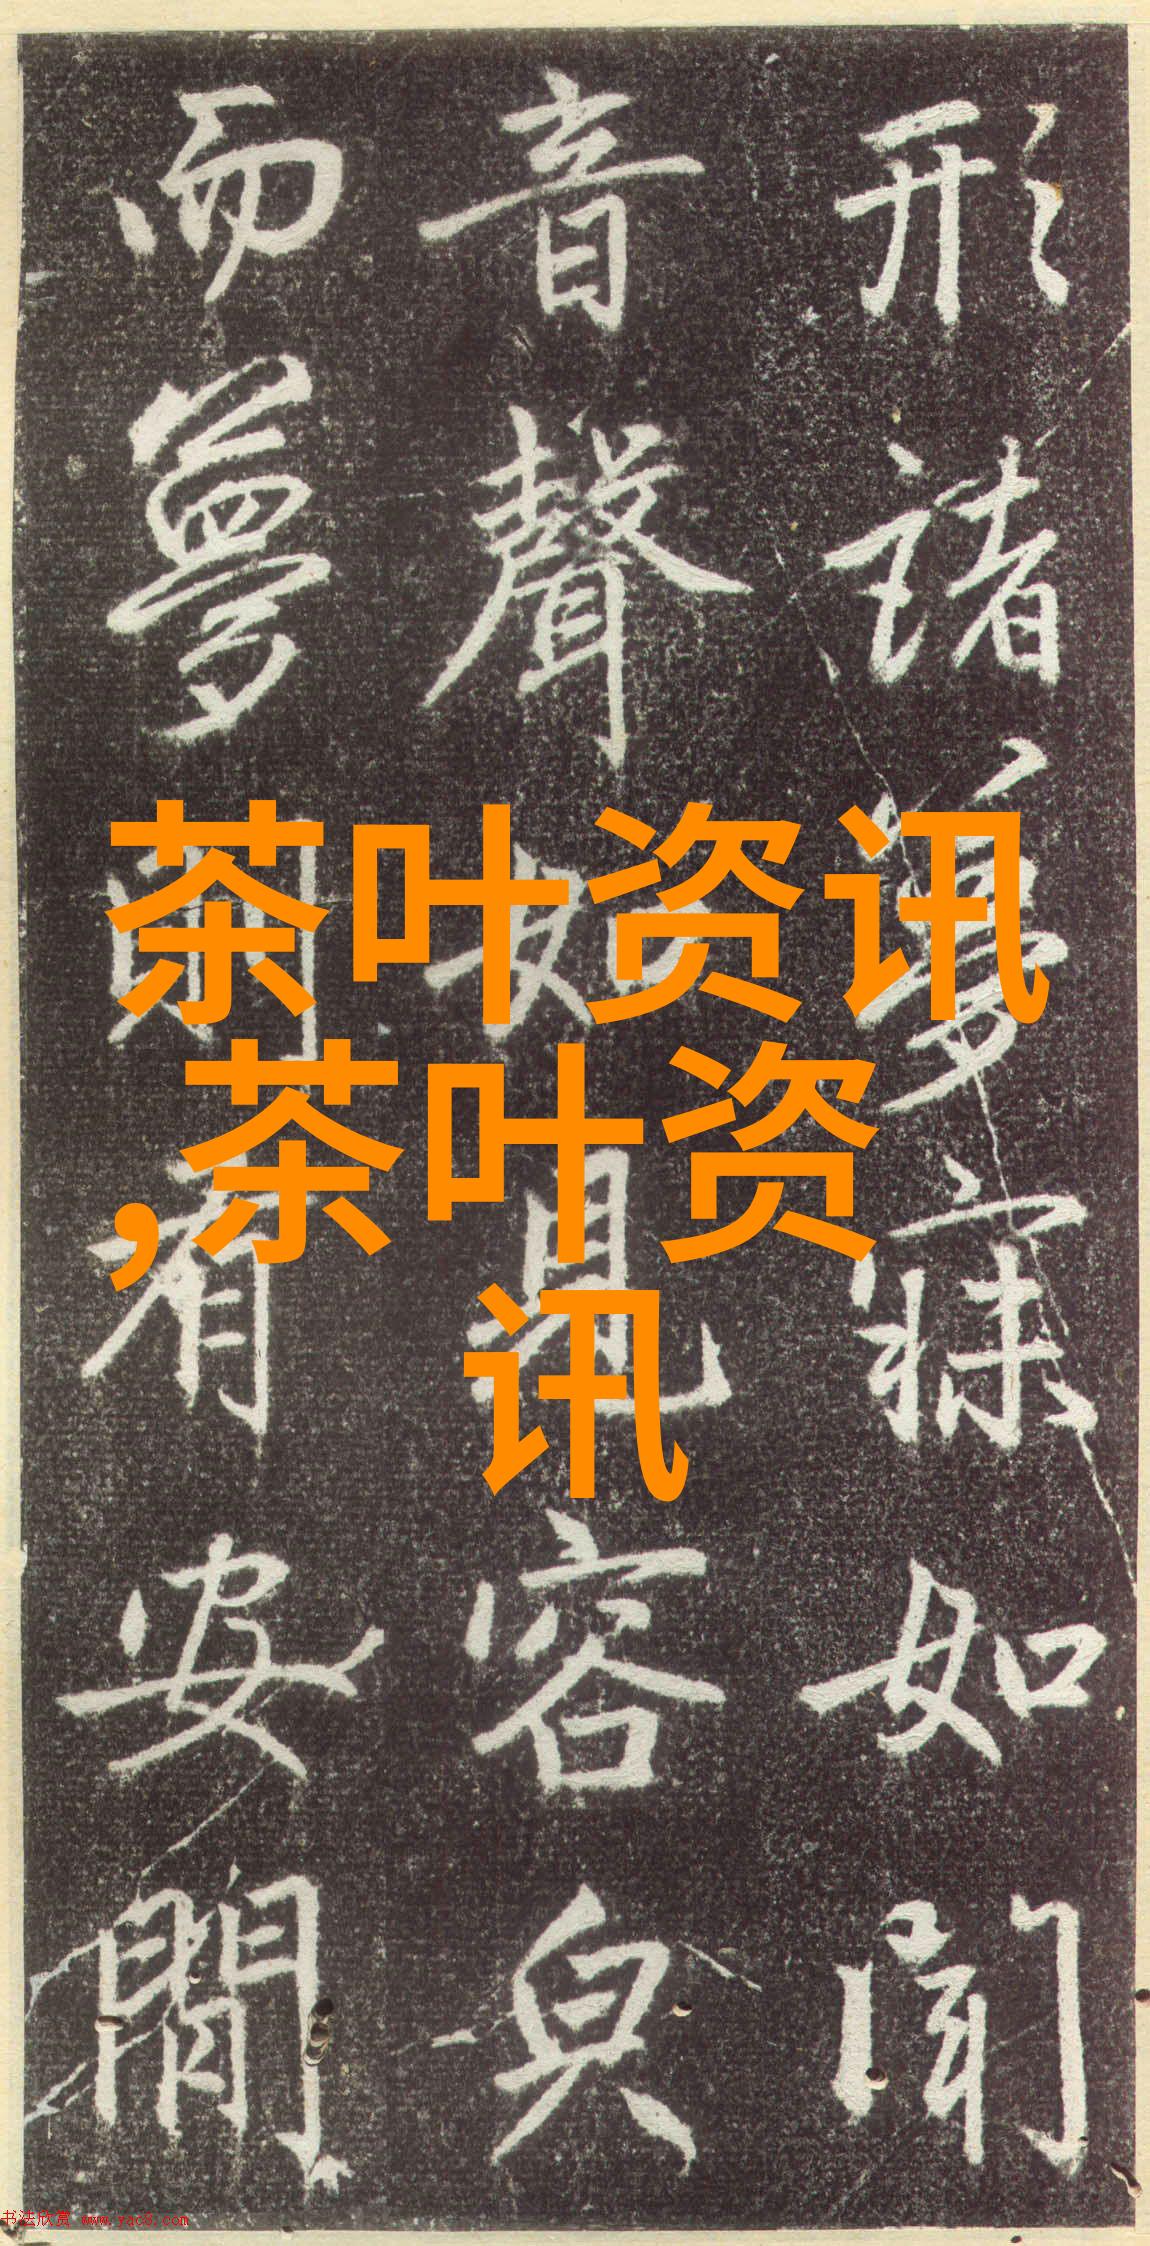 形諸夢寐如聞
音聲如見容皃
而夢則有安閒
茶叶资讯
,茶叶资
讯
书法欣赏 www.yac8.com